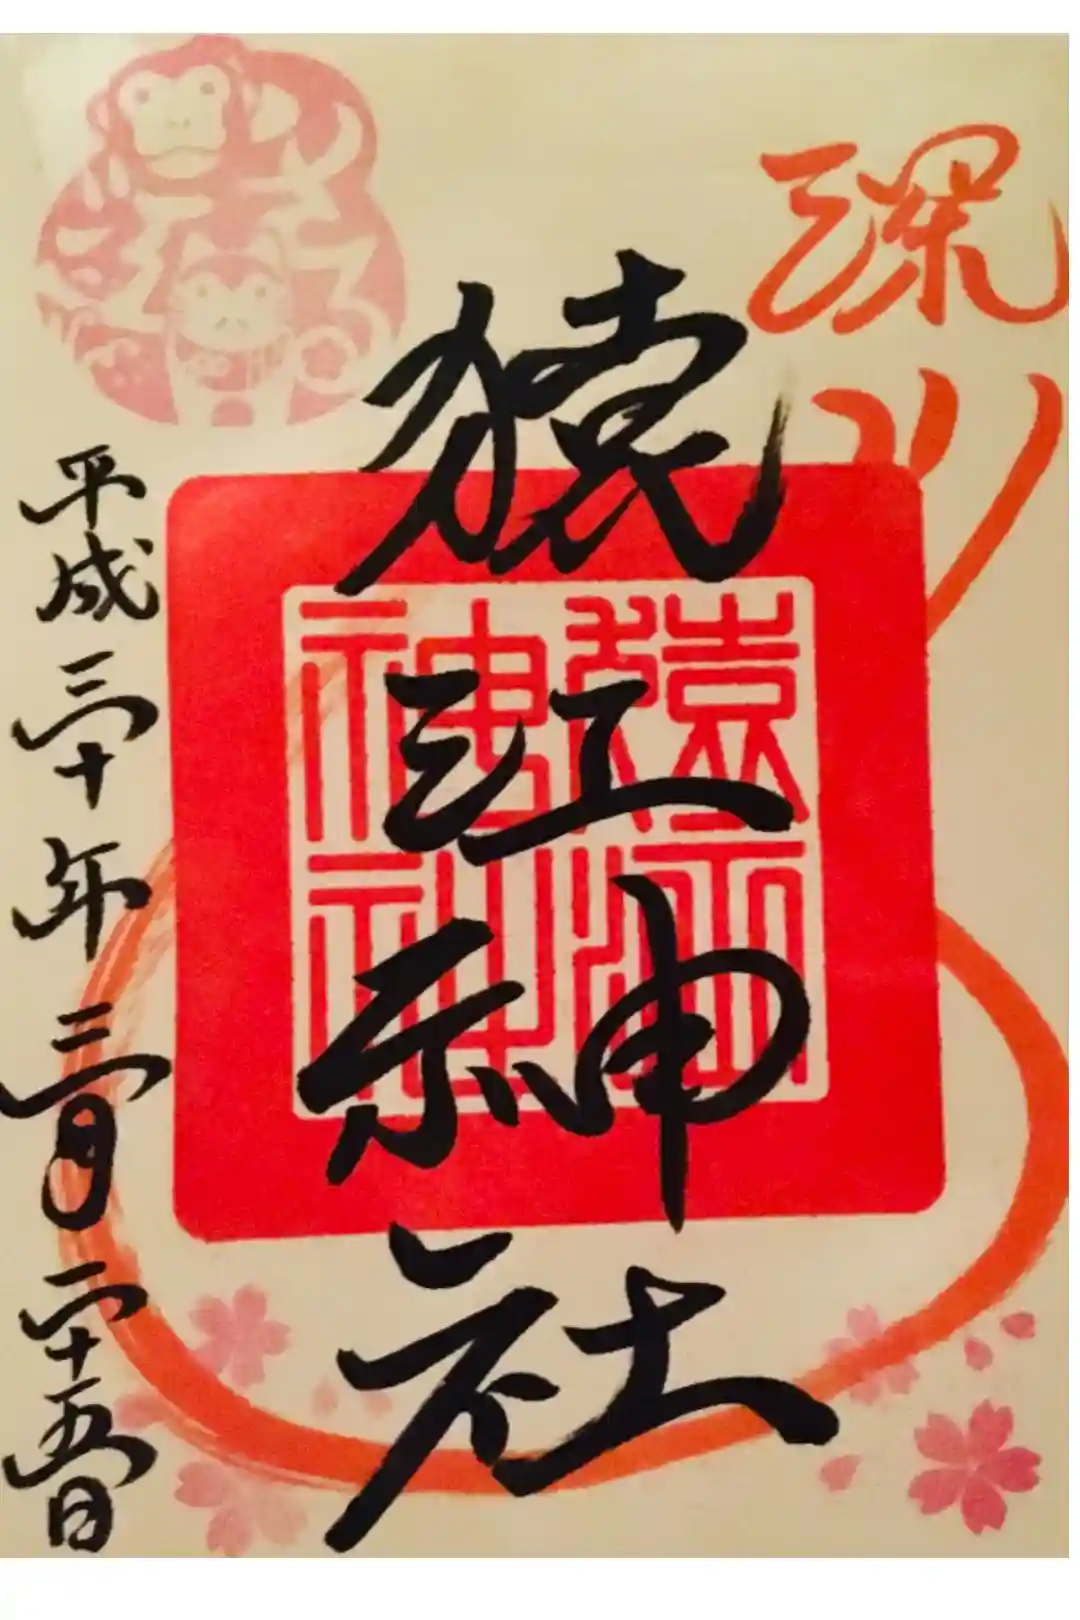 深川
猿江神社
猿江
神社
平成三十年三月二十五日